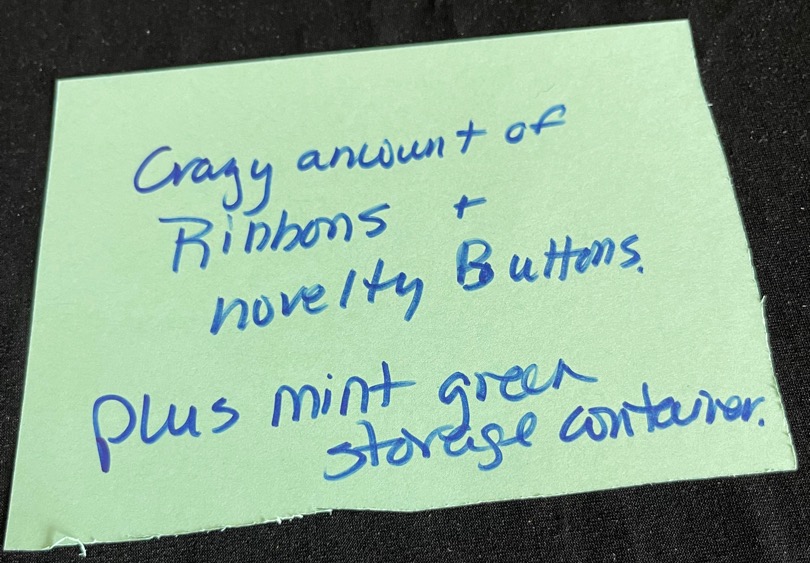 Crazy amount of
Ribbons +
novelty Buttons.
plus mint green
storage container.